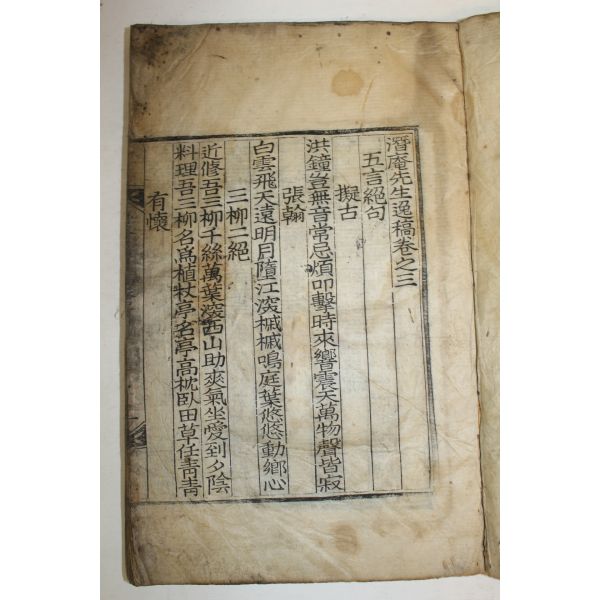 潛庵先生逸稿卷之三
五言絕句
擬古
洪鐘豈無音常忌煩叩擊時來響震天萬物聲皆寂
張翰
白雲飛天遠明月墮江深槭槭鳴庭葉悠悠動鄉心
三柳二絕
近修吾三柳千絲萬葉深西山助爽氣坐愛到夕陰
料理吾三柳名爲植杖亭名亭高枕臥田草任靑靑
有懷